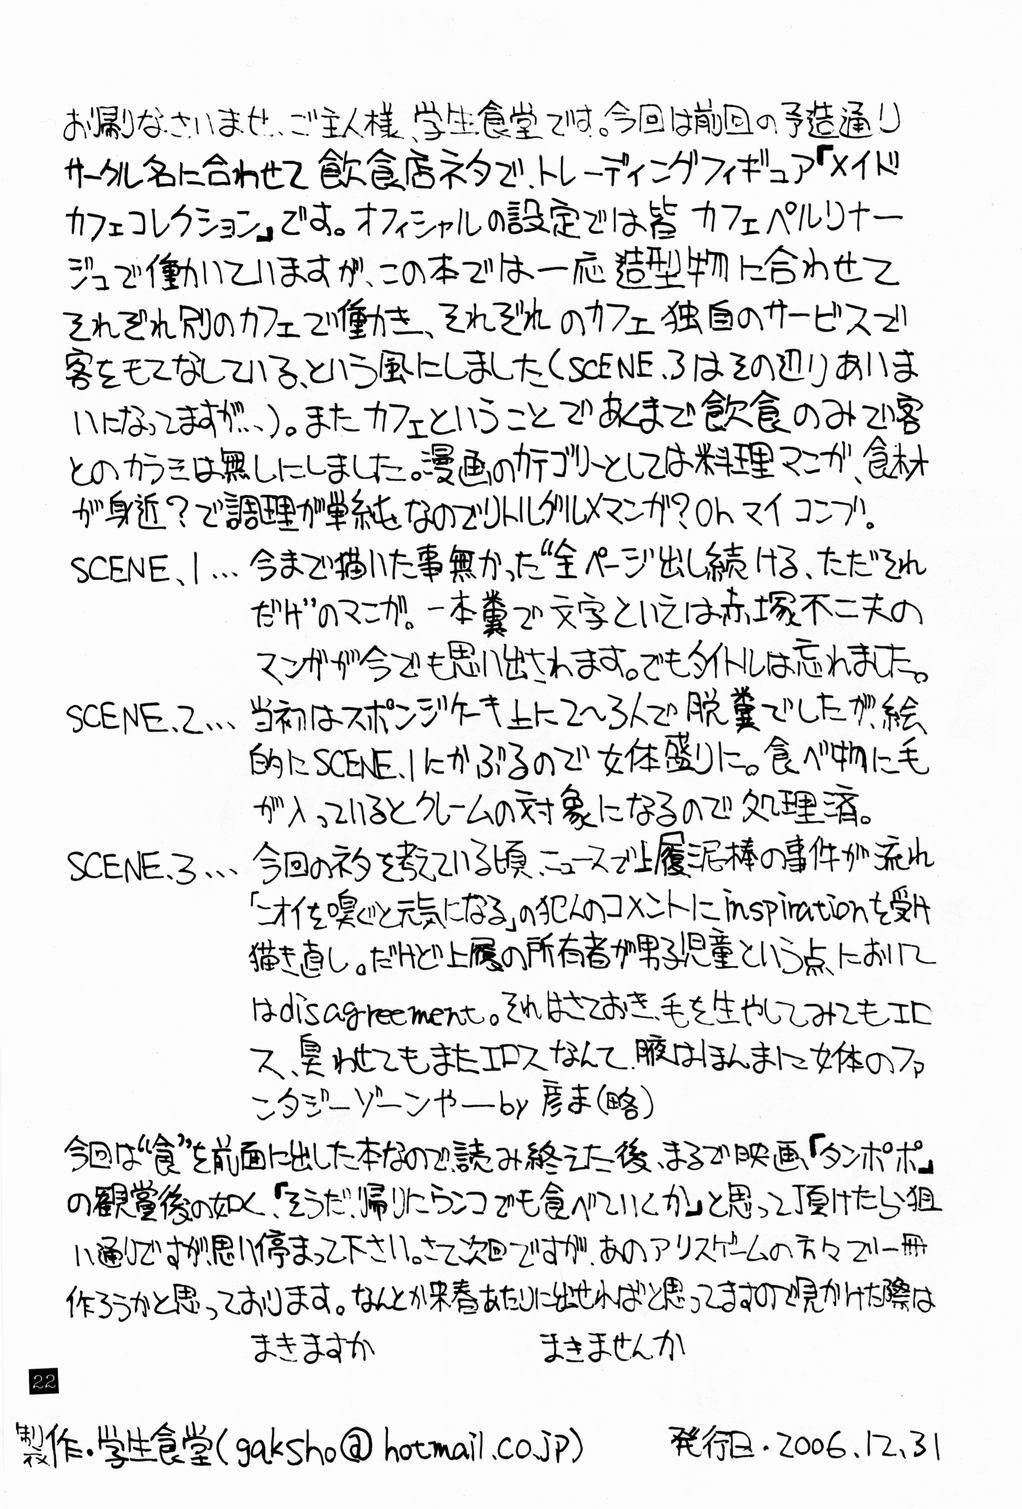 お帰りなさいませ、ご主人様、学生食堂です。今回は前回の予造通り
サークル名に合わせて飲食店ネタで、トレーディングフィギュア『メイド
カフェコレクション』です。オフィシャルの設定では皆カフェペルリナー
ジュで働いていますが、この本では一応造型物に合わせて
それぞれ別のカフェで働き、それぞれのカフェ独自のサービスで
客をもてなしている、という風にしました（SCENE.3はその辺りあいま
いになってますが…）。またカフェということであくまで飲食のみで客
とのカラミは無しにしました。漫画のカテゴリーとしては料理マンガ、食材
が身近？で調理が単純なのでリトルグルメマンガ？Ohマイコンブ。
SCENE.1… 今まで描いた事無かった“全ページ出し続ける、ただそれ
だけ”のマンガ。一本糞で文字といえば赤塚不二夫の
マンガが今でも思い出されます。でもタイトルは忘れました。
SCENE.2… 当初はスポンジケーキ上に2〜3人で脱糞でしたが、絵
的にSCENE.1にかぶるので女体盛りに。食べ物に毛
が入っているとクレームの対象になるので処理済。
SCENE.3… 今回のネタを考えている頃、ニュースで上履泥棒の事件が流れ
「ニオイを嗅ぐと元気になる」の犯人のコメントにinspirationを受け
描き直し。だけど上履の所有者が男子児童という点において
はdisagreement。それはさておき、毛を生やしてみてもエロ
ス、臭わせてもまたエロスなんて、腋はほんまに女体のファ
ンタジーゾーンや―by 彦ま(略)
今回は“食”を前面に出した本なので、読み終えた後、まるで映画、『タンポポ』
の観賞後の如く、『そうだ、帰りにウンコでも食べていくか』と思って頂けたら狙
い通りですが、思い停まって下さい。さて次回ですが、あのアリスゲームの方々で一冊
作ろうかと思っております。なんとか来春あたりに出せればと思ってますので見かけた際は
まきますか まきませんか
22
製作・学生食堂(gaksho@hotmail.co.jp) 発行日・2006.12.31